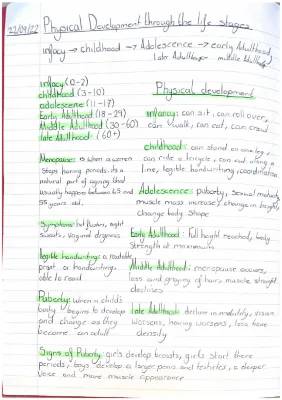 22/09/22
Physical Development through the life stages
infacy → childhood → Adolescence → early Adulthood
late Adulthood ← middle Adulthood
infacy (0-2)
childhood (3-10)
adolescene (11-17)
Early Adulthood (18-29)
Middle Adulthood (30-60)
late Adulthood: (60+)
Menopause: is when a women
stops having periods. its a
natural part of ageing that
usually happens between 45 and
55 years old.
Symptoms: hot flushes, night
sweats, vaginal dryness
legible handwriting: a readable
print or handwriting.
able to read
Puberty: when a child's
body begins to develop
and change as they
become an adult
Physical development
infancy: can sit, can roll over,
can walk, can eat, can crawl
childhood: can stand on one leg,
can ride a tricycle, can cut along a
line, legible handwriting, coordination
Adolescence: puberty, sexual maturity
muscle mass increase, change in height,
change body shape
Early Adulthood: full height reached, body
strength at maximum
Middle Adulthood: menopause occurs,
loss and greying of hair, muscle strength
declines
late Adulthood: decline in mobility, vision
worsens, hearing worsens, loss bone
density
Signs of Puberty: girls develop breasts, girls start there
periods, boys develop a larger penis and testicles, a deeper
voice and more muscle appearance